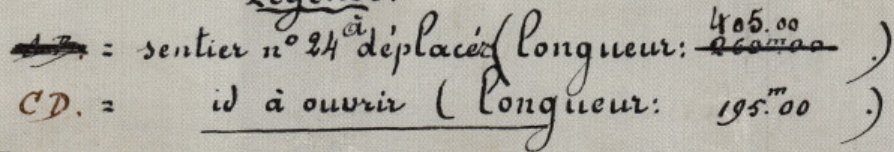 Légende.
= sentier n° 24 à déplacer (longueur: 405.00 260.m00 )
CD. = id à ouvrir ( longueur: 195.m00 .)